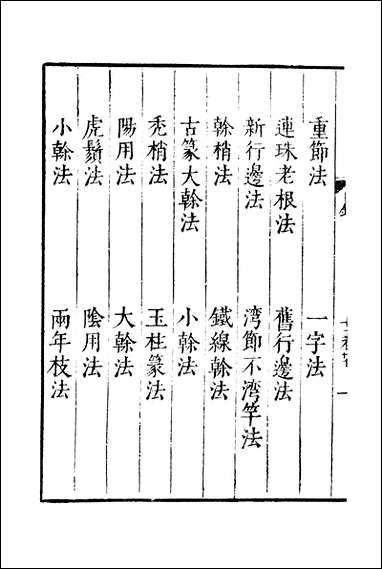 重節法 一字法
連珠老根法 舊行邊法
新行邊法 湾節不湾竿法
榦梢法 鐵線榦法
古篆大榦法 小榦法
禿梢法 玉柱篆法
陽用法 大榦法
虎鬚法 陰用法
小榦法 兩年枝法